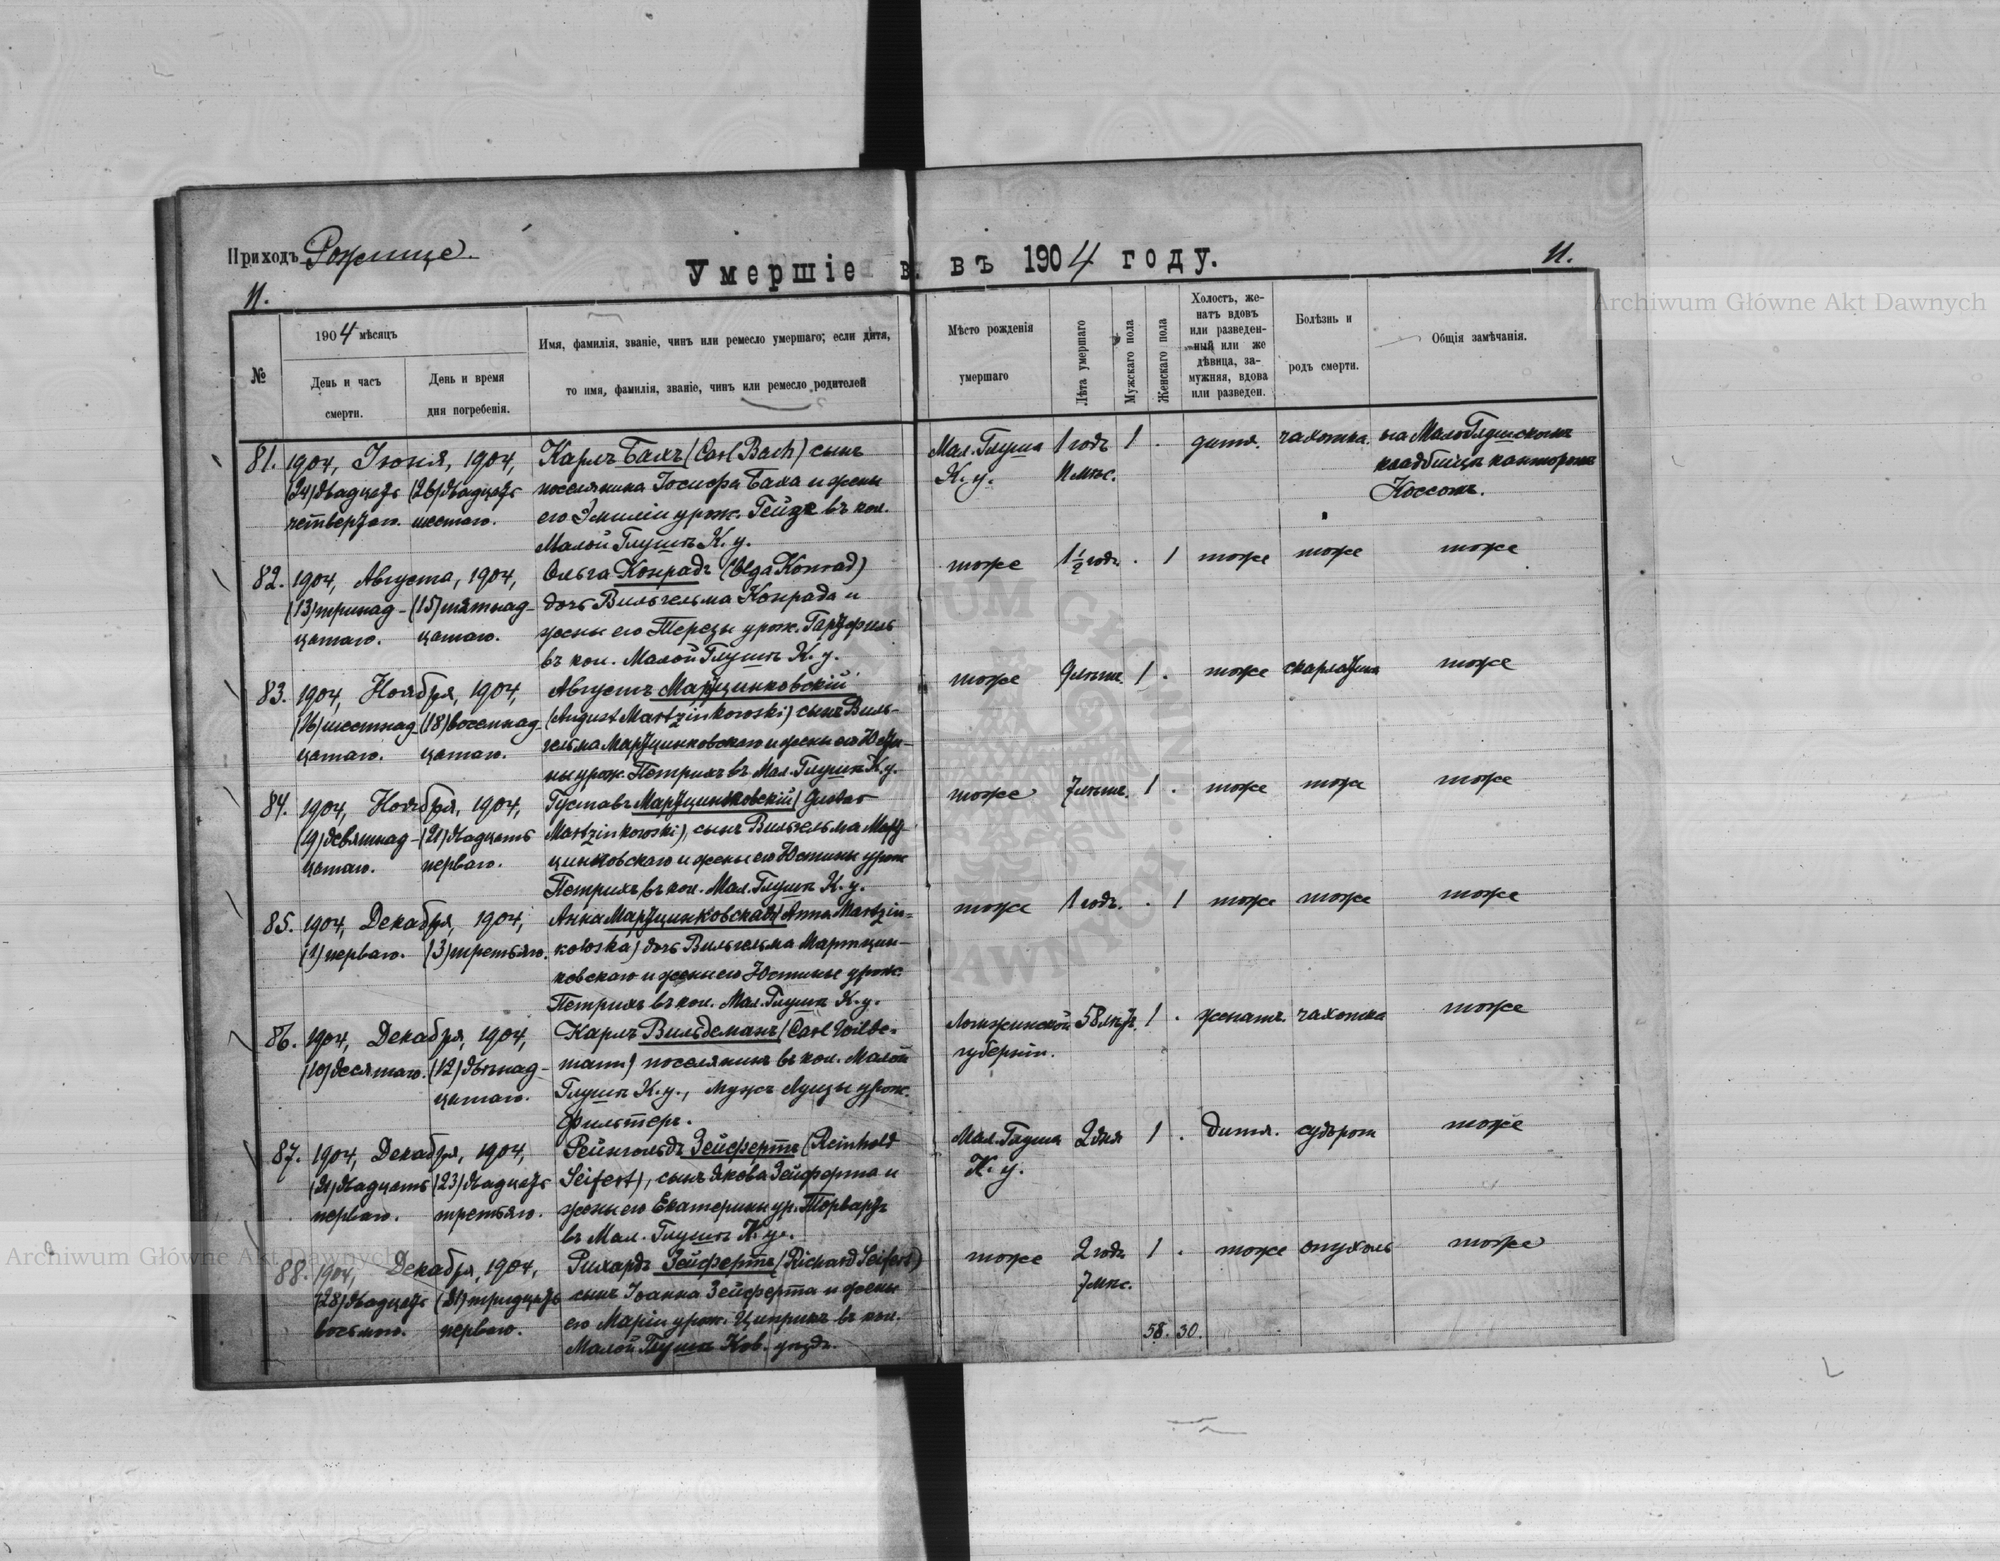 Приходъ Рожище.
Умершіе въ 1904 году.
11.
11.
№
1904 мѣсяцъ
День и часъ
смерти.
День и время
дня погребенія.
Имя, фамилія, званіе, чинъ или ремесло умершаго; если дитя,
то имя, фамилія, званіе, чинъ или ремесло родителей
Мѣсто рожденія
умершаго
Лѣта умершаго
Мужскаго пола
Женскаго пола
Холостъ, же-
натъ вдовъ
или разведен-
ный или же
дѣвица, за-
мужняя, вдова
или разведен.
Болѣзнь и
родъ смерти.
Общія замѣчанія.
81. 1904, Іюня, 1904,
(24) двадцать (26) двадцать
четвертаго. шестаго.
Карлъ Бахъ (Carl Bach) сынъ
поселянина Іосифа Баха и жены
его Эмиліи урож. Гейде въ кол.
Малой Глушѣ К. у.
Мал. Глуша 1 годъ 1 . дитя. чахотка. на Малоглушскомъ
К. у. 11 мѣс. кладбищѣ канторомъ
Коссомъ.
82. 1904, Августа, 1904,
(13) тринад- (15) пятнад-
цатаго. цатаго.
Ольга Конрадъ (Olga Konrad)
дочь Вильгельма Конрада и
жены его Терезы урож.
въ кол. Малой Глушѣ К. у.
тоже 1 1/2 годъ . 1 тоже тоже тоже
83. 1904, Ноября, 1904,
(16) шестнад- (18) восемнад-
цатаго. цатаго.
Августъ Мартцинковскій
(August Martzinkowski) сынъ Виль-
гельма Мартцинковскаго и жены его Юсти-
ны урож. Петрихъ въ Мал. Глушѣ К. у.
тоже 9 лѣтъ. 1 . тоже скарлатина тоже
84. 1904, Ноября, 1904,
(19) девятнад- (21) двадцать
цатаго. перваго.
Густавъ Мартцинковскій (Gustav
Martzinkowski), сынъ Вильгельма Март-
цинковскаго и жены его Юстины урож
Петрихъ въ кол. Мал. Глушѣ К. у.
тоже 7 лѣтъ. 1 . тоже тоже тоже
85. 1904, Декабря, 1904,
(1) перваго. (3) третьяго.
Анна Мартцинковская (Anna Martzin-
kowska) дочь Вильгельма Мартцин-
ковскаго и жены его Юстины урож.
Петрихъ въ кол. Мал. Глушѣ К. у.
тоже 1 годъ. . 1 тоже тоже тоже
86. 1904, Декабря, 1904,
(10) десятаго. (12) двѣнад-
цатаго.
Карлъ Вильдеманъ (Carl Wilde-
mann) поселянинъ въ кол. Малой
Глушѣ К. у., мужъ Луизы урож.
Фильтеръ.
Ломжинской 58 лѣтъ. 1 . женатъ. чахотка тоже
губерніи.
87. 1904, Декабря, 1904,
(21) двадцать (23) двадцать
перваго. третьяго.
Рейнгольдъ Зейфертъ (Reinhold
Seifert), сынъ Якова Зейферта и
жены его Екатерины ур. Торвартъ
въ Мал. Глушѣ К. у.
Мал. Глуша 2 дня 1 . дитя. судорги тоже
К. у.
88. 1904, Декабря, 1904,
(28) двадцать (31) тридцать
восьмого. перваго.
Рихардъ Зейфертъ (Richard Seifert)
сынъ Іоанна Зейферта и жены
его Маріи урож. Циприкъ въ кол.
Малой Глушѣ Ков. уѣзд.
тоже 2 года 1 . тоже опухоль тоже
7 мѣс.
58. 30.
Archiwum Główne Akt Dawnych
Archiwum Główne Akt Dawnych